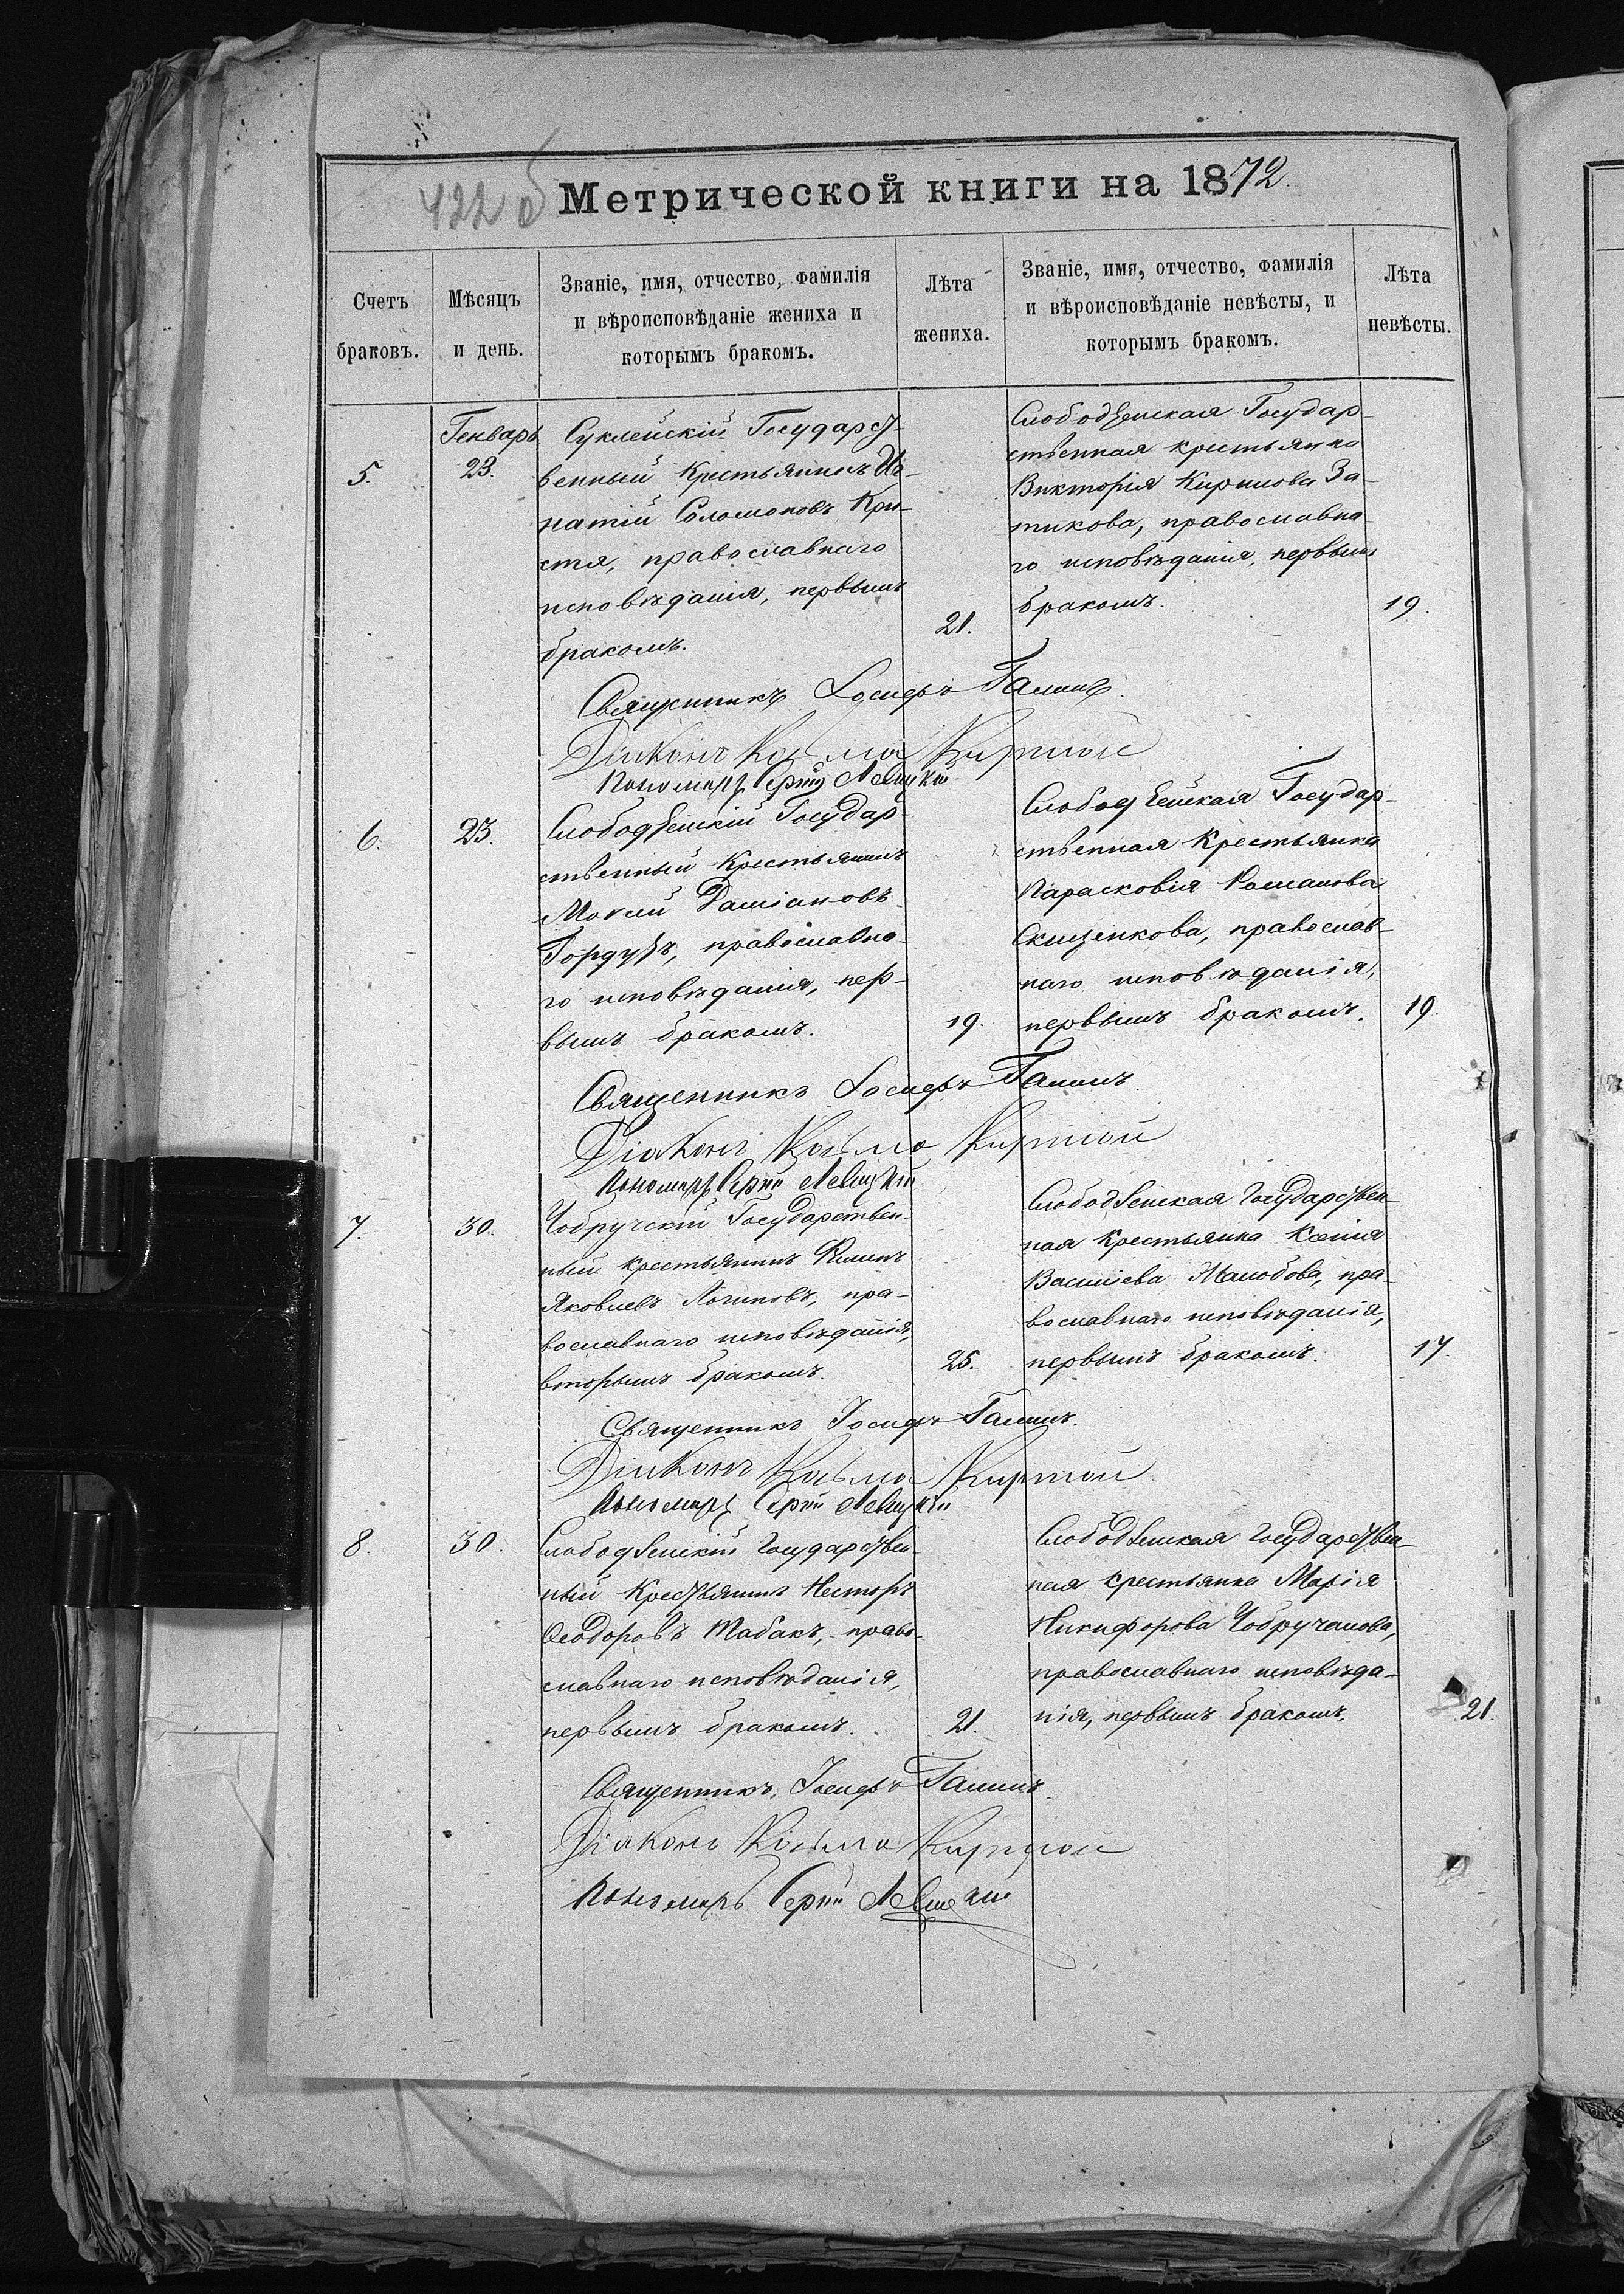 422 об
Метрической книги на 1872.
Счетъ браковъ.
Мѣсяцъ и день.
Званіе, имя, отчество, фамилія
и вѣроисповѣданіе жениха и
которымъ бракомъ.
Лѣта
жениха.
Званіе, имя, отчество, фамилія
и вѣроисповѣданіе невѣсты, и
которымъ бракомъ.
Лѣта
невѣсты.
5.
Генварь
23.
Суклейскій Государст-
венный Крестьянинъ Иг-
натій Соломоновъ Кри-
стя, православнаго
исповѣданія, первымъ
бракомъ.
21.
Слободзейская Государ-
ственная крестьянка
Викторія Кирилова За-
тикова, православна-
го исповѣданія, первымъ
бракомъ.
19.
Священникъ Іосифъ Галинъ.
Діаконъ Козьма Киртой
Пономарь Сергій Левицкій
6.
23.
Слободзейскій Государ-
ственный Крестьянинъ
Мокій Даміановъ
Гордузъ, православна-
го исповѣданія, пер-
вымъ бракомъ.
19.
Слободзейская Государ-
ственная Крестьянка
Парасковія Романова
православ-
наго исповѣданія,
первымъ бракомъ.
19.
Священникъ Іосифъ Галинъ
Діаконъ Козьма Киртой
Пономарь Сергій Левицкій
7.
30.
Чобручскій Государствен-
ный крестьянинъ Филипъ
Яковлевъ Логиновъ, пра-
вославнаго исповѣданія,
вторымъ бракомъ.
25.
Слободзейская Государствен-
ная Крестьянка Ксенія
Василіева пра-
вославнаго исповѣданія,
первымъ бракомъ.
17.
Священникъ Іосифъ Галинъ.
Діаконъ Козьма Киртой
Пономарь Сергій Левицкій
8.
30.
Слободзейскій Государствен-
ный Крестьянинъ Несторъ
Ѳеодоровъ Табакъ, право-
славнаго исповѣданія,
первымъ бракомъ.
21.
Слободзейская Государствен-
ная крестьянка Марія
Никифорова Чобручанова,
православнаго исповѣда-
нія, первымъ бракомъ.
21.
Священникъ, Іосифъ Галинъ.
Діаконъ Козьма Киртой
Пономарь Сергій Левицкій